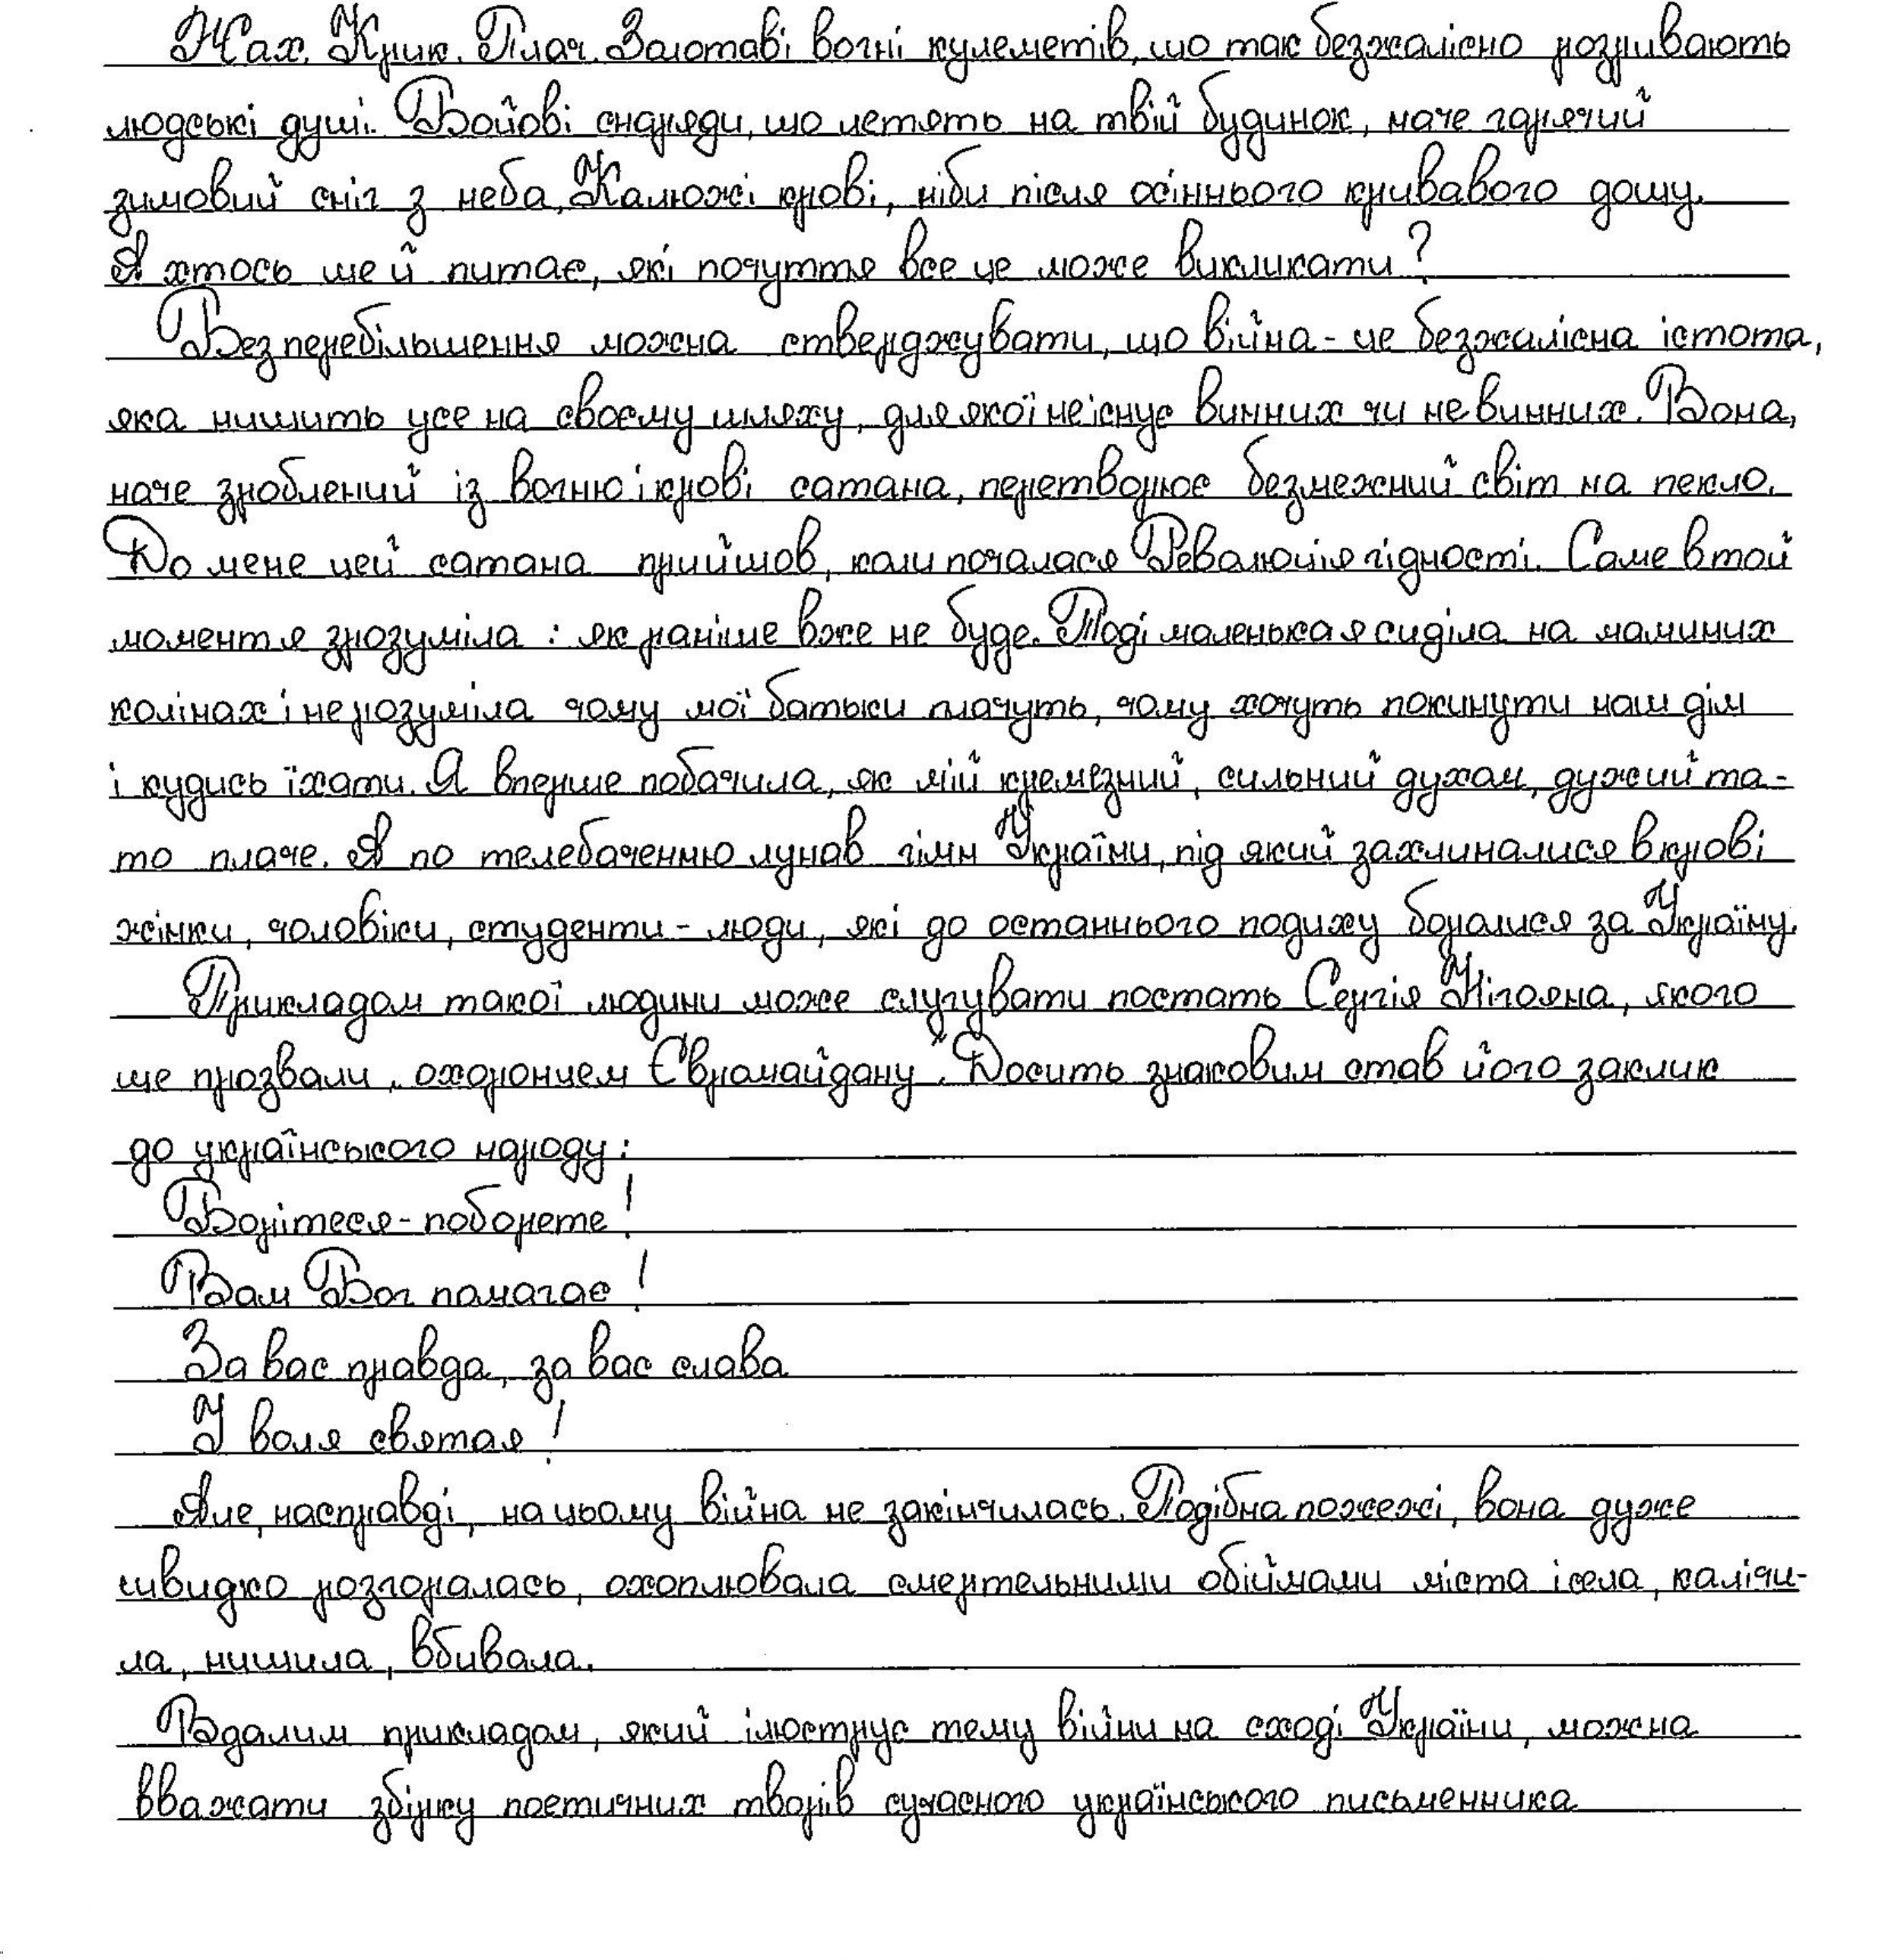 Жах. Крик. Плач. Золотаві вогні кулеметів, що так безжалісно розривають
людські душі. Бойові снаряди, що летять на твій будинок, наче гарячий
зимовий сніг з неба. Калюжі крові, ніби після осіннього кривавого дощу.
А хтось ще й питає, які почуття все це може викликати?
Без перебільшення можна стверджувати, що війна - це безжалісна істота,
яка нищить усе на своєму шляху, для якої не існує винних чи невинних. Вона,
наче зроблений із вогню і крові сатана, перетворює безмежний світ на пекло.
До мене цей сатана прийшов, коли почалася Революція гідності. Саме в той
момент я зрозуміла : як раніше вже не буде. Тоді маленька я сиділа на маминих
колінах і не розуміла чому мої батьки плачуть, чому хочуть покинути наш дім
і кудись їхати. Я вперше побачила, як мій кремезний, сильний духом, дужий та-
то плаче. А по телебаченню лунав гімн України, під який захлиналися в крові
жінки, чоловіки, студенти - люди, які до останнього подиху боролися за Україну.
Прикладом такої людини може слугувати постать Сергія Нігояна, якого
ще прозвали „охоронцем Євромайдану". Досить знаковим став його заклик
до українського народу:
Борітеся - поборете!
Вам Бог помагає!
За вас правда, за вас слава
І воля святая!
Але, насправді, на цьому війна не закінчилась. Подібна пожежі, вона дуже
швидко розгоралась, охоплювала смертельними обіймами міста і села, калічи-
ла, нищила, вбивала.
Вдалим прикладом, який ілюструє тему війни на сході України, можна
вважати збірку поетичних творів сучасного українського письменника